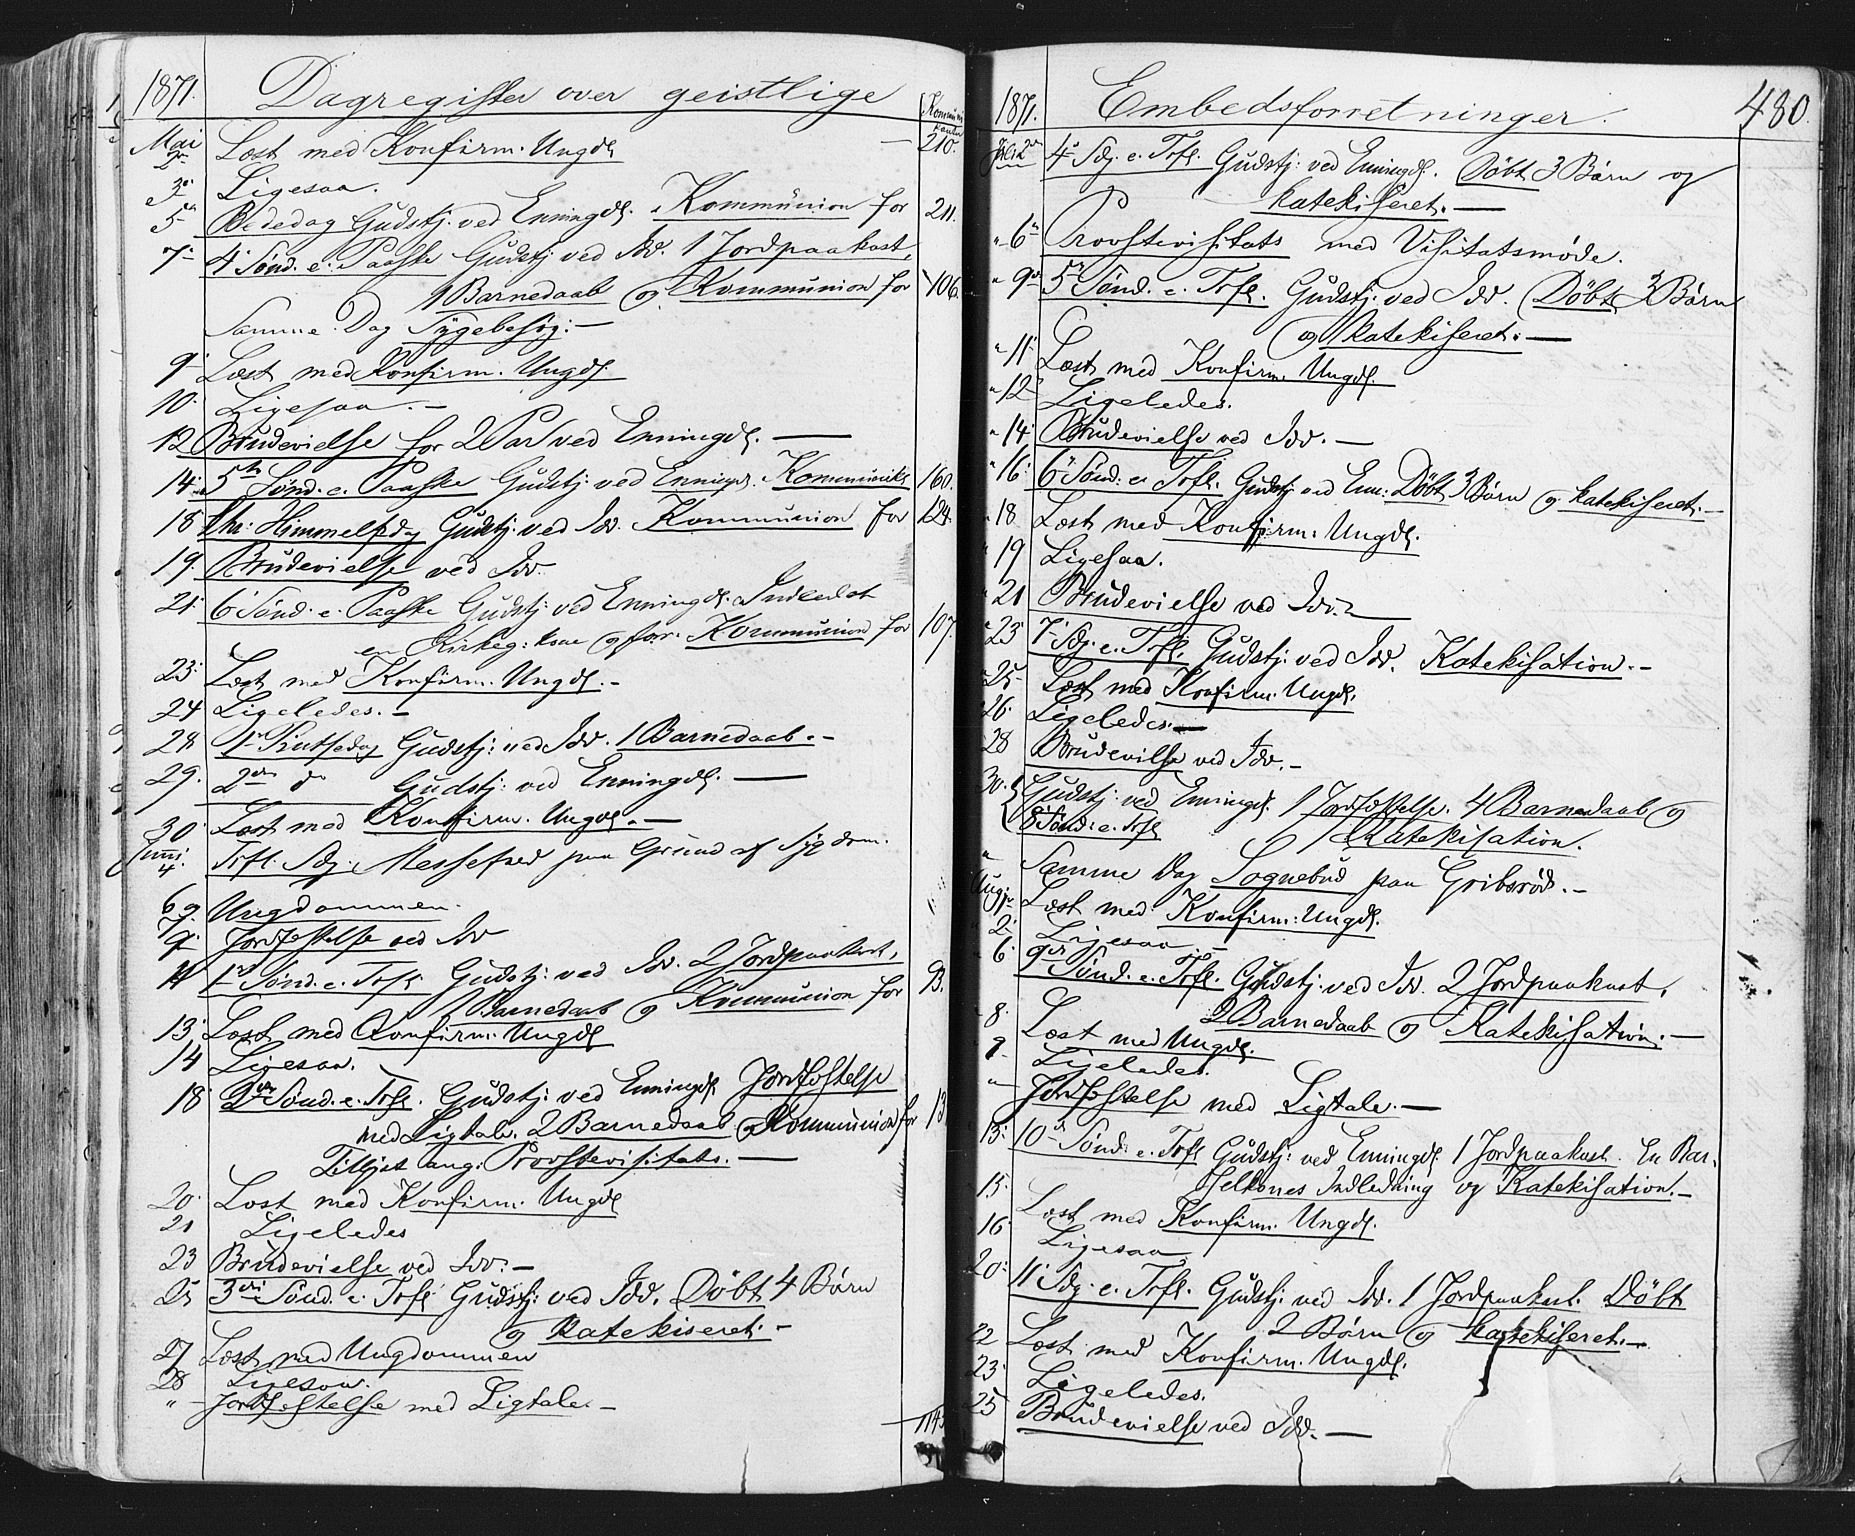 1871. Dagregister over geistlige Kommunikanter
Mai 2den Læst med Konfirm. Ungd. — 210.
3di Ligesaa.
5te Bededag Gudstj: ved Enningd. Kommunion for 211.
7de 4. Sønd. e. Paaske Gudstj ved Idd. 1 Jordpaakast,
1 Barnedaab og Kommunion for 106.
Samme Dag Sygebesøg: —
9. Læst med Konfirm. Ungd.
10. Ligesaa. —
12 Brudevielse for 2 Par ved Enningd. —
14. 5te Sønd. e. Paaske Gudstj: ved Enningd. Kommunik. 160.
18 Chr: Himmelfdg Gudstj: ved Idd. Kommunion for 124.
19. Brudevielse ved Idd.
21. 6 Sønd. e. Paaske Gudstj: ved Enningd. Indledet
en Kirkeg: kone og for: Kommunion for 107.
23. Læst med Konfirm. Ungd. —
24 Ligeledes. —
28 1. Pintsedag Gudstj: ved Idd. 1 Barnedaab. —
29. 2den do Gudstj: ved Enningd. —
30 Læst med Konfirm. Ungd. —
Juni 4. Trft. Sdg: Messefald paa Grund af Sygdom.
6 Ungdommen.
9. Jordfæstelse ved Idd
11 1ste Sønd. e. Trft. Gudstj: ved Idd. 2 Jordpaakast,
1 Barnedaab og Kommunion for 93.
13. Læst med Konfirm. Ungd
14 Ligesaa.
18 2den Sønd. e. Trft. Gudstj: ved Enningd. Jordfæstelse
med Ligtale. 2 Barnedaab og Kommunion for 13
Tillyst ang: Provstevisitats. —
20. Læst med Konfirm. Ungd
21 Ligeledes
23 Brudevielse ved Idd. —
25 3die Sønd. e. Trft Gudstj: ved Idd. Døbt 4 Børn
og katekiseret. —
27 Læst med Ungdommen
28 Ligesaa.
" Jordfæstelse med Ligtale. —
1871. Embedsforretninger. 480.
Juli 2den 4de Sdg. e. Trft. Gudstj: ved Enningd. Døbt 3 Børn og
katekiseret. —
" 6te Provstevisitats med Visitatsmøde.
" 9de 5te Sønd. e. Trft. Gudstj. ved Idd. Døbt 3 Børn
og katekiseret. —
" 11. Læst med Konfirm. Ungd.
" 12. Ligeledes.
" 14. Brudevielse ved Idd. —
" 16. 6te Sønd. e. Trft. Gudstj. ved Enn: Døbt 3 Børn og katekiseret. —
" 18 Læst med Konfirm: Ungd.
" 19 Ligesaa.
" 21 Brudevielse ved Idd. —
" 23 7. Sdg. e. Trft. Gudstj: ved Idd. Katekisation. —
" 25 Læst med Konfirm. Ungd.
26. Ligeledes. —
28 Brudevilse ved Idd. —
30. Gudstj: ved Enningd. 1 Jordfæstelse. 4 Barnedaab og
8 Sønd: e. Trft Katekisation.
" Samme Dag Sognebud paa Gribsrød. —
Aug: 1ste Læst med Konfirm: Ungd.
" 2. Ligesaa. —
" 6. 9de Sønd. e. Trft. Gudstj: ved Idd. 2 Jordpaakast,
2 Barnedaab og Katekisation. —
" 8. Læst med Ungd.
9. Ligeledes.
" Jordfæstelse med Ligtale. —
13. 10de Sønd. e. Trft Gudstj: ved Enningd 1 Jordpaakast. En Bar-
selkones Indledning og Katekisation. —
15. Læst med Konfirm. Ungd.
16. Ligesaa
20. 11. Sdg. e. Trft. Gudstj. ved Idd. 1 Jordpaakast. Døbt
2 Børn og katekiseret. —
22 Læst med Konfirm. Ungd.
23. Ligeledes.
25 Brudevielse ved Idd. —